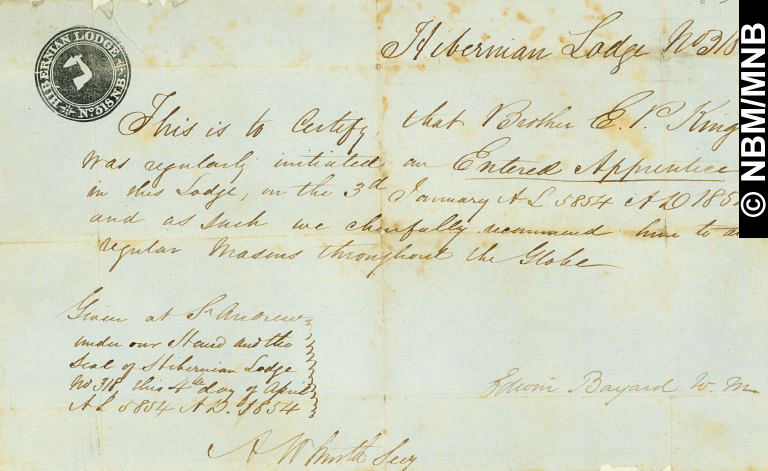 HIBERNIAN LODGE
No 318 NB
נ
Hibernian Lodge No 318
This is to Certify, that Brother E. P. King
was regularly initiated an Entered Apprentice
in this Lodge, on the 3d January A L 5854 A D 185
and as such we chearfully recommend him to a
regular Masons throughout the Globe
Given at St. Andrews
under our Hand and the
Seal of Hibernian Lodge
No 318 this 4th day of April
A L 5854 A D. 1854
Edwin Bayard W. M.
A W Secy
© NBM/MNB